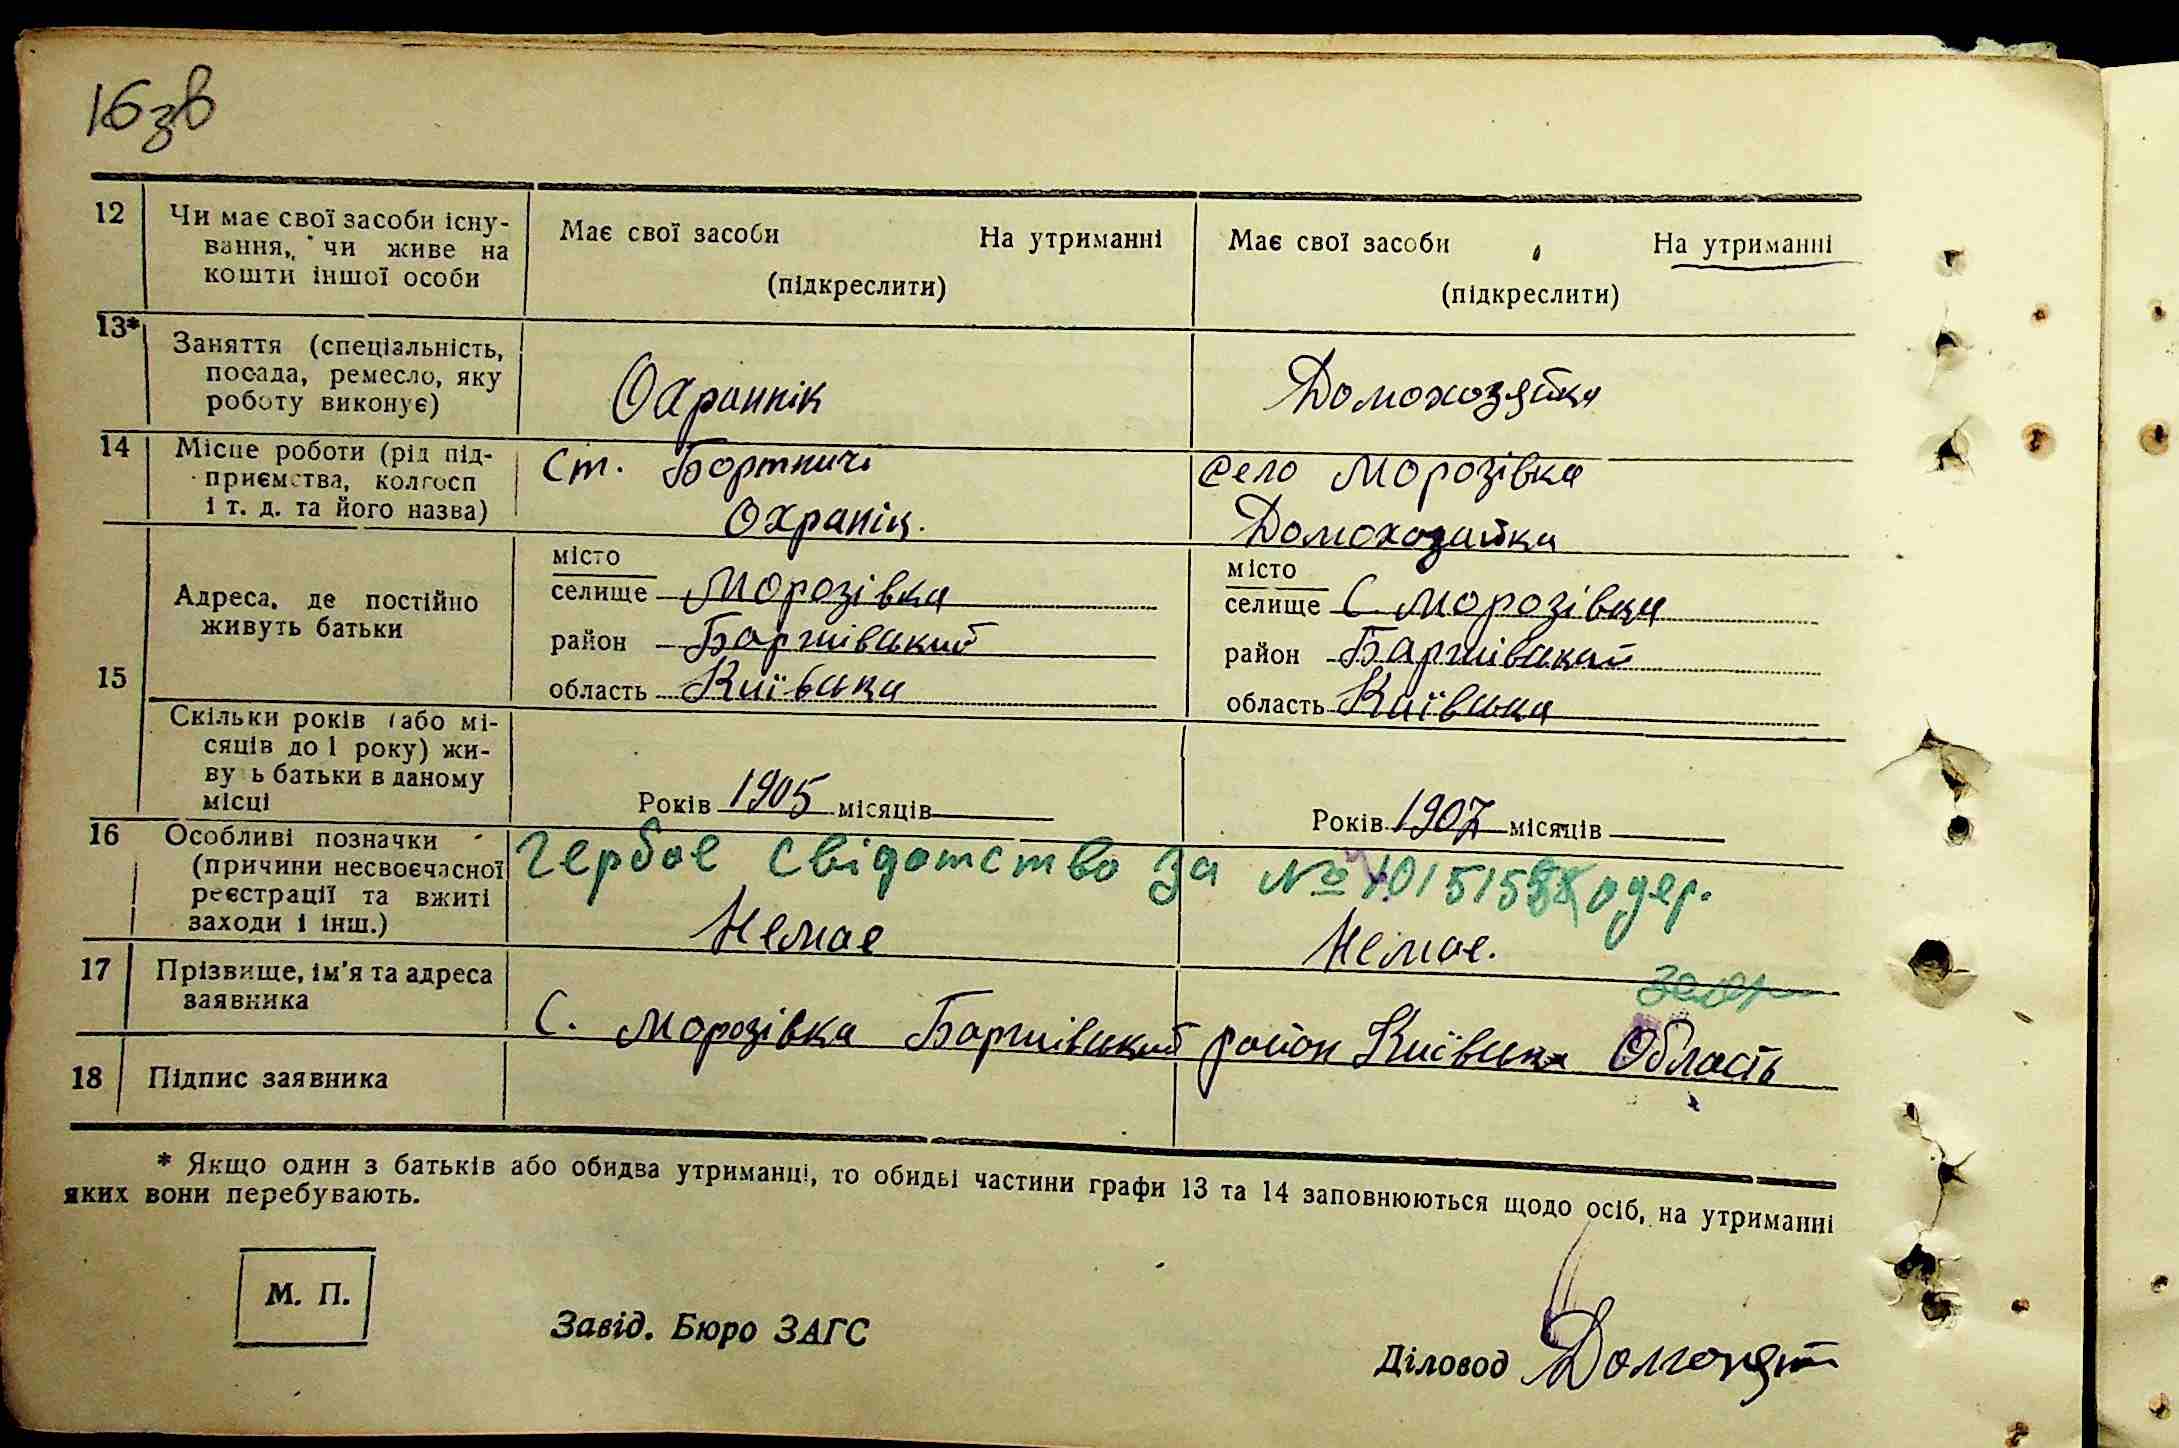 16зв
12 Чи має свої засоби існу-
вання, чи живе на
кошти іншої особи
Має свої засоби На утриманні
(підкреслити)
Має свої засоби На утриманні
(підкреслити)
13* Заняття (спеціальність,
посада, ремесло, яку
роботу виконує)
Охраннік
Домохозяйка
14 Місце роботи (рід під-
приємства, колгосп
і т. д. та його назва)
Ст. Бортничі
Охранік.
село Морозівка
Домохозайка
15 Адреса, де постійно
живуть батьки
місто
селище Морозівка
район Баришівський
область Київська
місто
селище С. Морозівка
район Баришівський
область Київська
Скільки років (або мі-
сяців до 1 року) жи-
ву ь батьки в даному
місці
Років 1905 місяців
Років 1907 місяців
16 Особливі позначки
(причини несвоєчасної
реєстрації та вжиті
заходи і інш.)
Гербове свідотство за № одер.
Немає
Немає.
17 Прізвище, ім'я та адреса
заявника
С. Морозівка Баришівський район Київська Область
18 Підпис заявника
* Якщо один з батьків або обидва утриманці, то обидві частини графи 13 та 14 заповнюються щодо осіб, на утриманні
яких вони перебувають.
М. П.
Завід. Бюро ЗАГС
Діловод